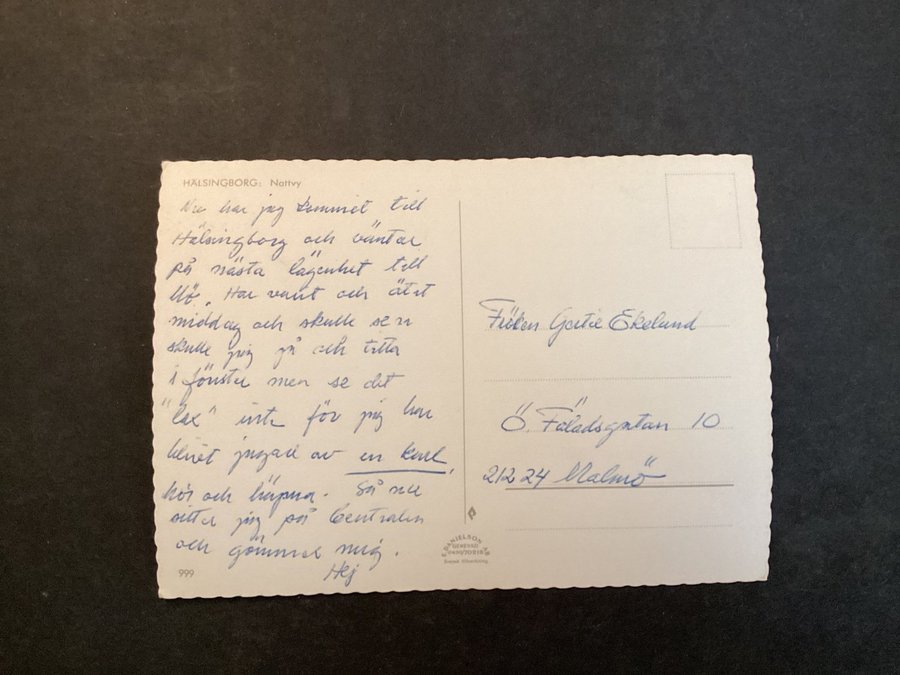 HÄLSINGBORG: Nattvy
Nu har jag kommit till
Hälsingborg och väntar
på nästa lägenhet till
Mö. Har varit och ätit
middag och skulle sen
skulle jag gå och titta
i fönster men se det
"lax" inte för jag har
blivit jagad av en karl,
hör och häpna. Så nu
sitter jag på Centralen
och gömmer mig.
Hej
999
Fröken Ekelund
Ö. Fäladsgatan 10
212 24 Malmö
E. DANIELSON AB